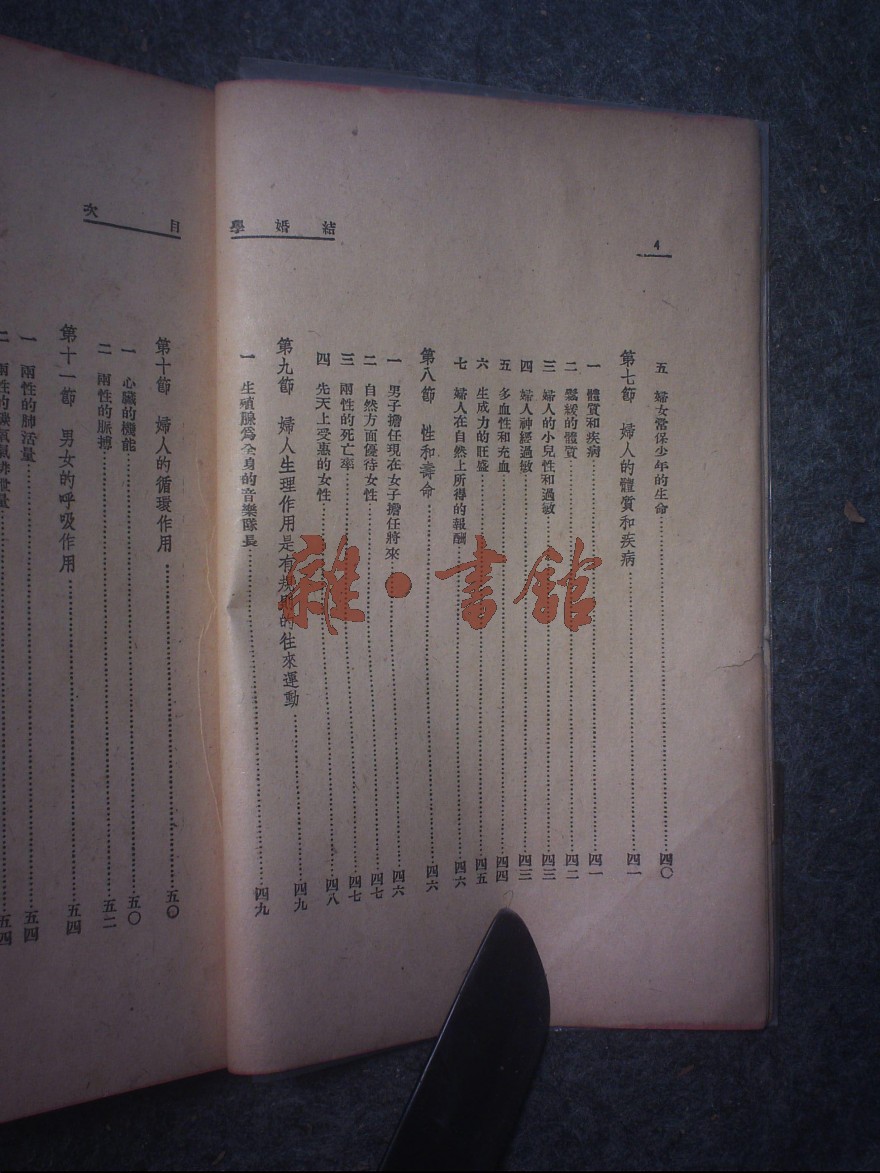 4
結婚學
五 婦女常保少年的生命……四〇
第七節 婦人的體質和疾病……四一
一 體質和疾病……四一
二 鬆緩的體質……四二
三 婦人的小兒性和過敏……四三
四 婦人神經過敏……四三
五 多血性和充血……四四
六 生成力的旺盛……四五
七 婦人在自然上所得的報酬……四六
第八節 性和壽命……四六
一 男子擔任現在女子擔任將來……四六
二 自然方面優待女性……四七
三 兩性的死亡率……四七
四 先天上受惠的女性……四八
第九節 婦人生理作用是有規則的往來運動……四九
一 生殖腺為全身的音樂隊長……四九
目次
第十節 婦人的循環作用……五〇
一 心臟的機能……五〇
二 兩性的脈搏……五二
第十一節 男女的呼吸作用……五四
一 兩性的肺活量……五四
二 兩性的碳氧氣排泄量……五四
雜·書館